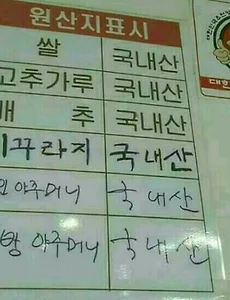 원산지표시
쌀 국내산
고추가루 국내산
배 추 국내산
미꾸라지 국내산
인 아주머니 국내산
방 아주머니 국내산
대한